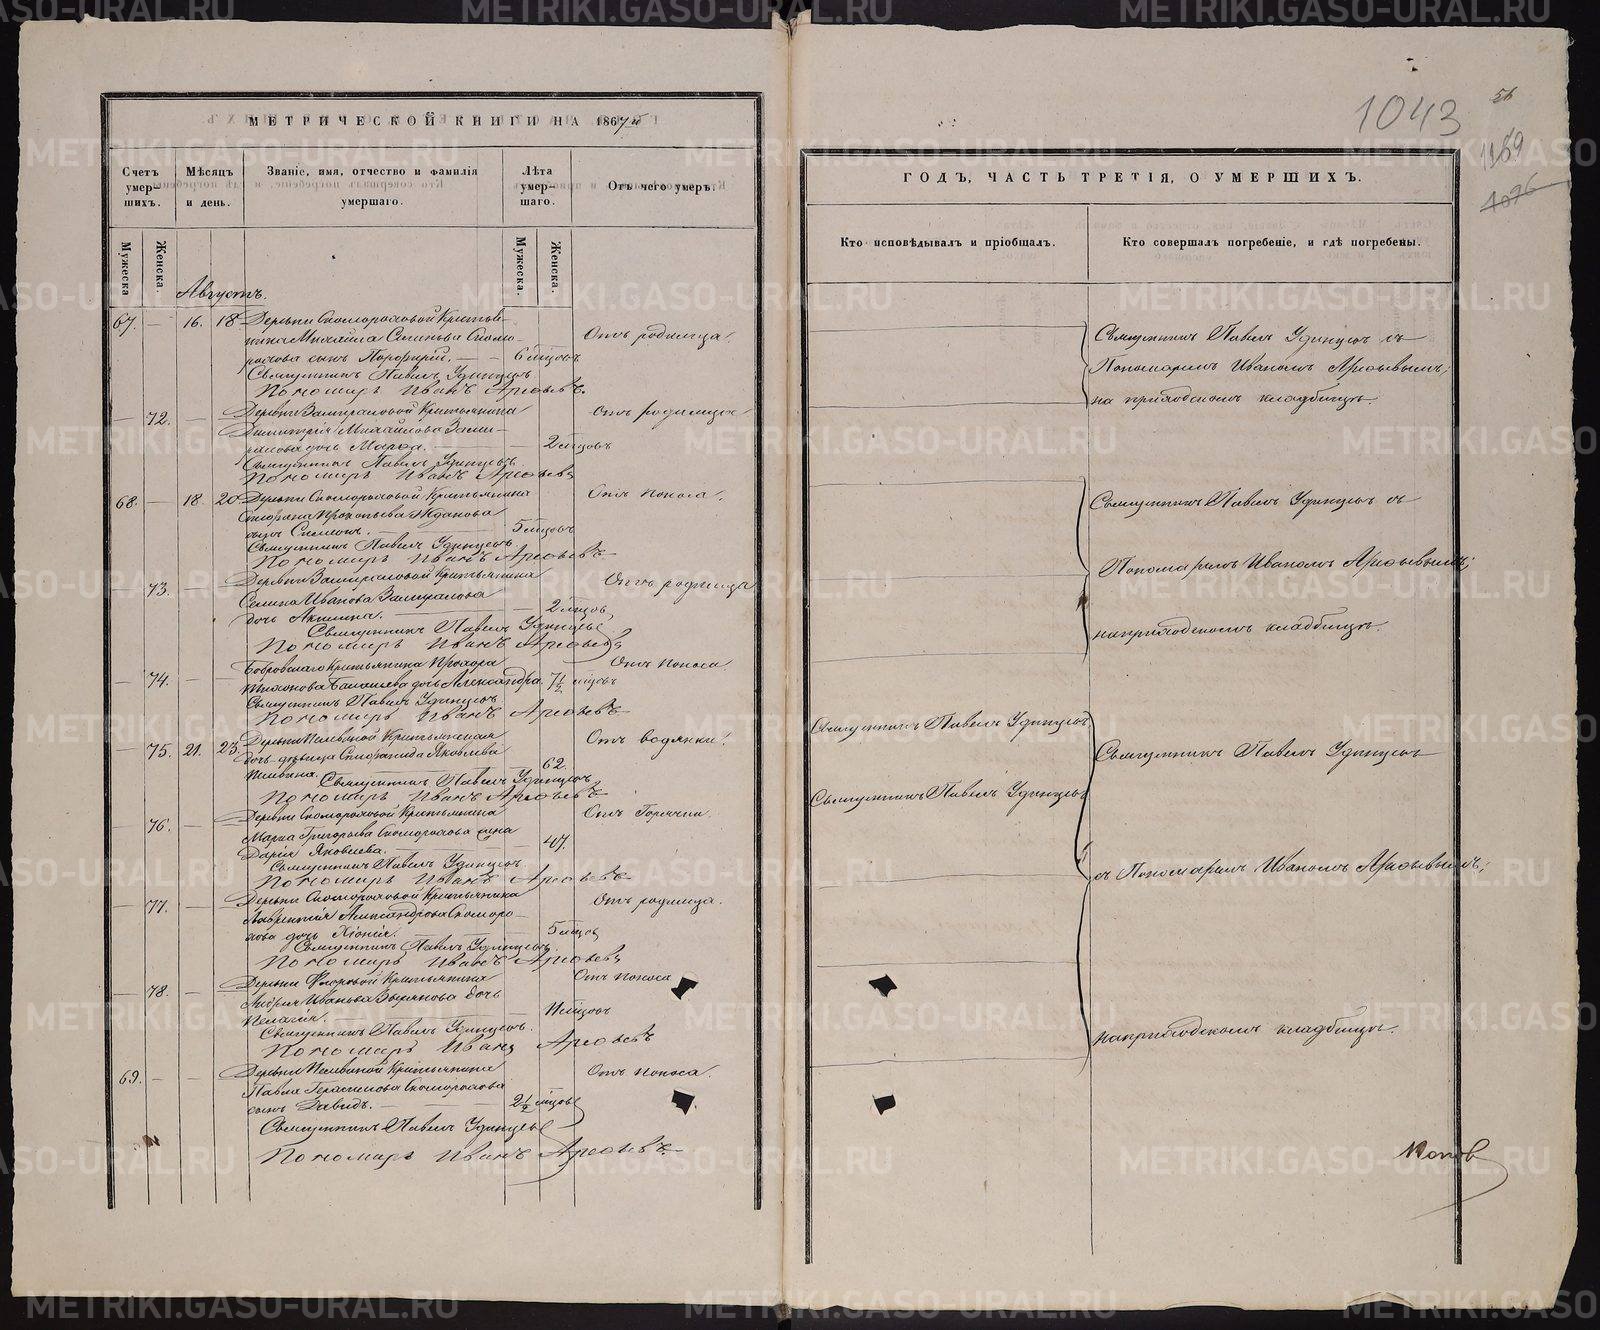 МЕТРИЧЕСКОЙ КНИГИ НА 1867й
Счетъ умер-шихъ.
Мѣсяцъ и день.
Званіе, имя, отчество и фамилія умершаго.
Лѣта умер-шаго.
Отъ чего умеръ.
Мужеска
Женска.
Мужеска.
Женска.
Августъ.
67. — 16. 18 Деревни Скомороховой Крестья-
нина Михаила Скомо-
рохова сынъ Порфирій. — 6 мѣсцовъ
Отъ родимца.
Священникъ Павелъ Удинцовъ
Пономарь Иванъ Арефьевъ.
— 72. — — Деревни Замираловой Крестьянина
Отъ родимца
Димитрія Михайлова Зами-
ралова дочь Марфа. — 2 мѣсцовъ
Священникъ Павелъ Удинцовъ
Пономарь Иванъ Арефьевъ
68. — 18. 20 Деревни Скомороховой Крестьянина
Отъ поноса.
Прокопьева Жданова
сынъ Симеонъ. — 5 мѣсцовъ
Священникъ Павелъ Удинцовъ
Пономарь Иванъ Арефьевъ
— 73. — — Деревни Замираловой Крестьянина
Отъ родимца
Семена Иванова Замиралова
дочь Акилина. — 2 мѣсцов
Священникъ Павелъ Удинцовъ
Пономарь Иванъ Арефьевъ
— 74. — — Бобровскаго Крестьянина Прохора
Отъ поноса.
дочь Александра. 7 1/2 мѣсцовъ
Священникъ Павелъ Удинцовъ
Пономарь Иванъ Арефьевъ
— 75. 21. 23. Деревни Крестьянская
Отъ водянки.
дочь дѣвица Яковлева
62.
Священникъ Павелъ Удинцовъ
Пономарь Иванъ Арефьевъ
— 76. — — Деревни Скомороховой Крестьянина
Отъ Горячки.
Марка Григорьева Скоморохова жена
Дарія Яковлева. — 47.
Священникъ Павелъ Удинцовъ
Пономарь Иванъ Арефьевъ
— 77. — — Деревни Скомороховой Крестьянина
Отъ родимца.
Лаврентія Александрова Скоморо-
хова дочь Хіонія. — 5 мѣсцов
Священникъ Павелъ Удинцовъ.
Пономарь Иванъ Арефьевъ
— 78. — — Деревни Крестьянина
Отъ поноса
Андрея Иванова Зырянова дочь
Пелагія. — мѣсцовъ
Священникъ Павелъ Удинцовъ.
Пономарь Иванъ Арефьевъ
69. — — — Деревни Крестьянина
Отъ поноса.
Павла Герасимова Скоморохова
сынъ Давидъ. — 2 1/2 мѣсцовъ
Священникъ Павелъ Удинцовъ
Пономарь Иванъ Арефьевъ.
1043
56
1159
1076
ГОДЪ, ЧАСТЬ ТРЕТІЯ, О УМЕРШИХЪ.
Кто исповѣдывалъ и пріобщалъ.
Кто совершалъ погребеніе, и гдѣ погребены.
Священникъ Павелъ Удинцовъ съ
Пономаремъ Иваномъ Арефьевымъ;
на приходскомъ кладбищѣ.
Священникъ Павелъ Удинцовъ съ
Пономаремъ Иваномъ Арефьевымъ;
на приходскомъ кладбищѣ.
Священникъ Павелъ Удинцовъ
Священникъ Павелъ Удинцовъ
Священникъ Павелъ Удинцовъ
съ Пономаремъ Иваномъ Арефьевымъ;
на приходскомъ кладбищѣ.
Попов
METRIKI.GASO-URAL.RU